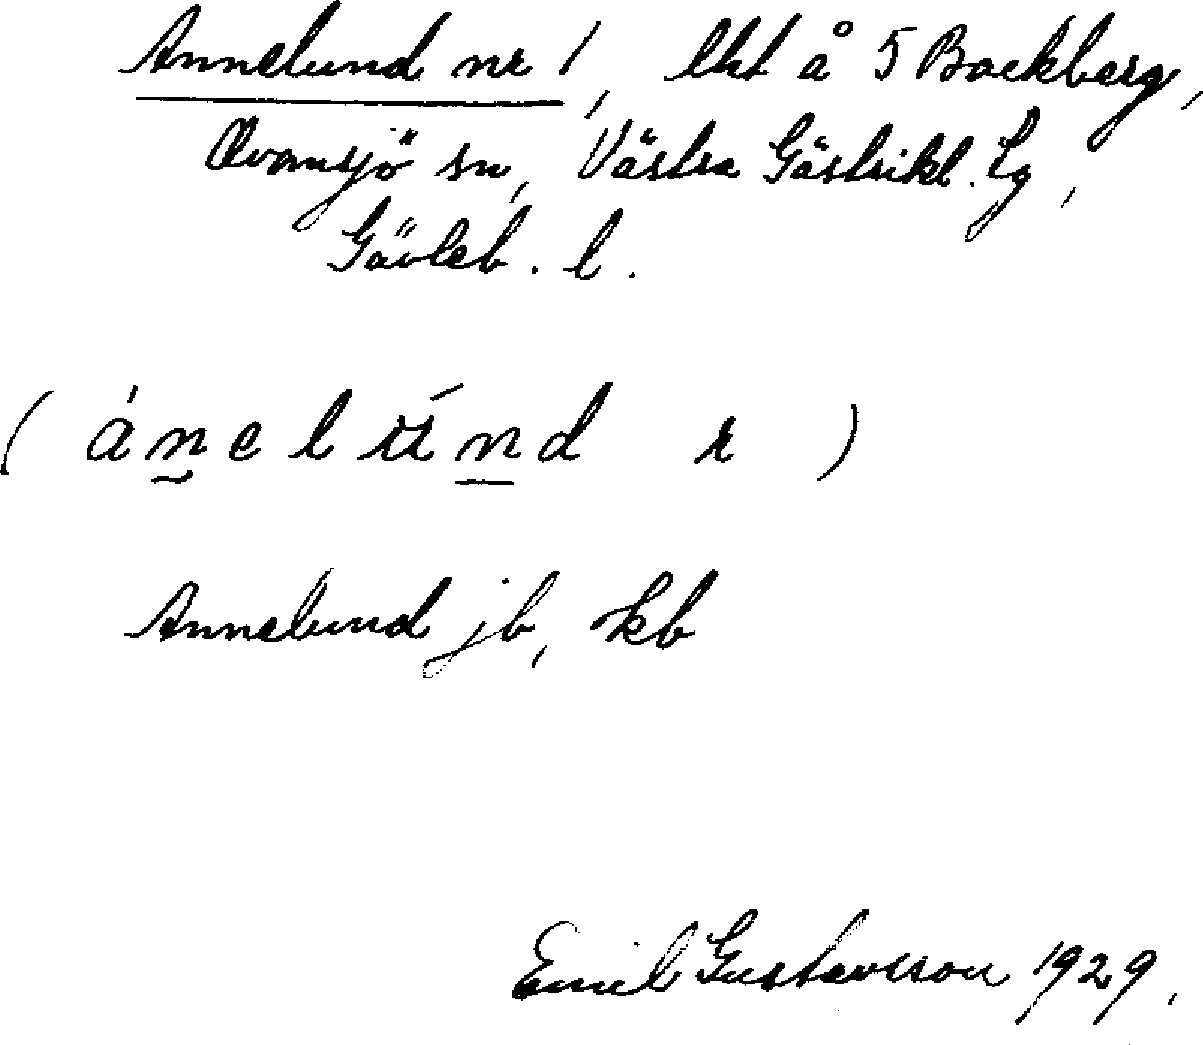 Annelund nr 1, lht å 5 Backberg,
Ovansjö sn, Västra Gästrikl. lg,
Gävleb. l.
( ánelünd r )
Annelund jb, kb
Emil Gustavsson 1929.